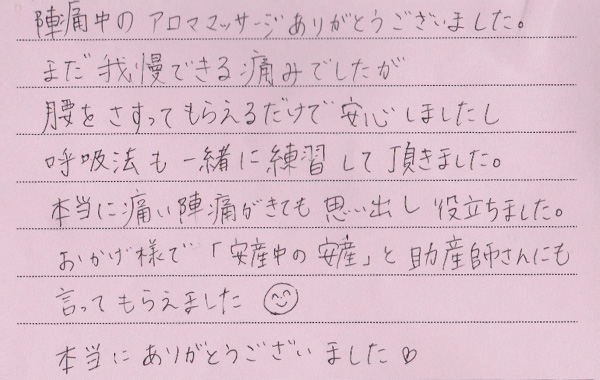 陣痛中のアロママッサージありがとうございました。
まだ我慢できる痛みでしたが
腰をさすってもらえるだけで安心しましたし
呼吸法も一緒に練習して頂きました。
本当に痛い陣痛がきても思い出し役立ちました。
おかげ様で「安産中の安産」と助産師さんにも
言ってもらえました
本当にありがとうございました♡